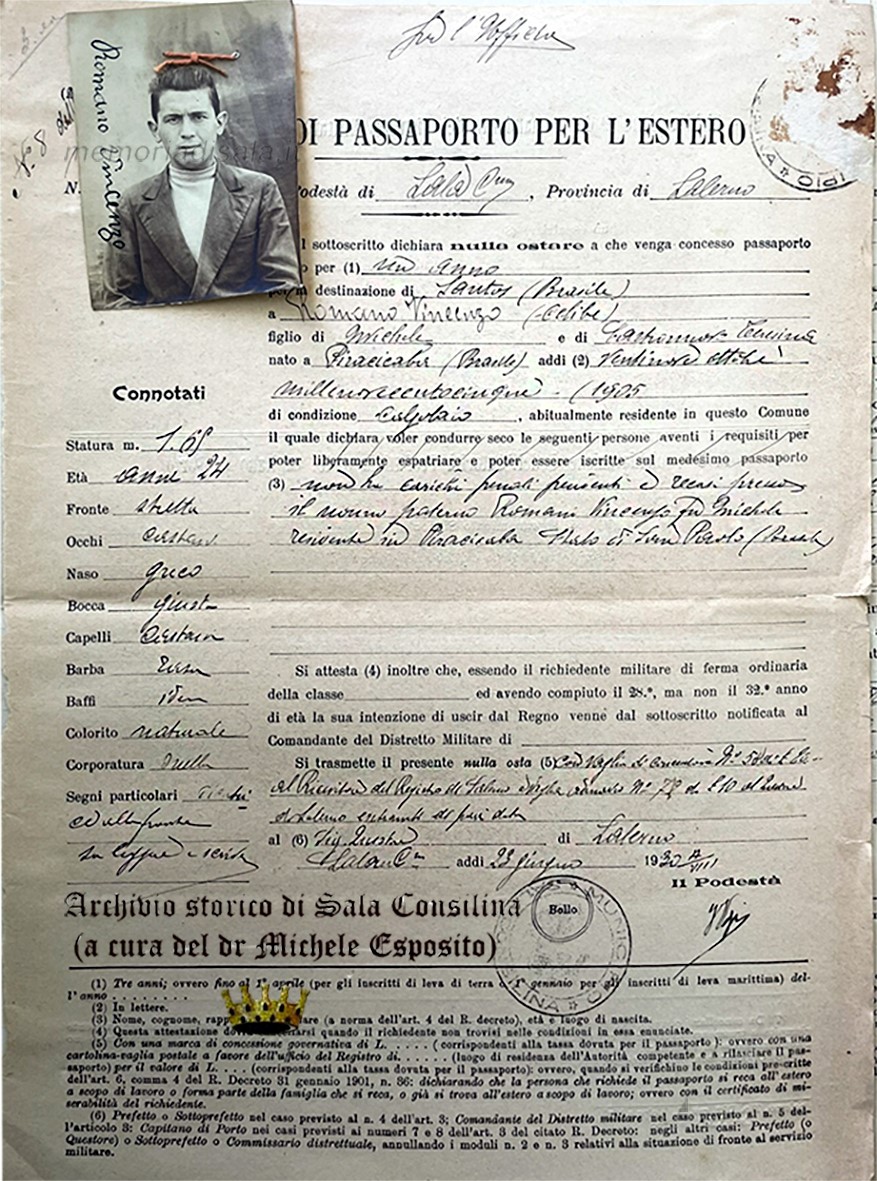 per l'Ufficio
N. 8
Romano Vincenzo
memoriadisala.it
DI PASSAPORTO PER L'ESTERO
N.
Podestà di Sala Cna, Provincia di Salerno
l sottoscritto dichiara nulla ostare a che venga concesso passaporto
o per (1) un anno
per la destinazione di Santos (Brasile)
a Romano Vincenzo (celibe)
figlio di Michele e di Teresina
nato a Piracicaba (Brasile) addì (2) ventinove ottobre
millenovecentocinque - (1905
di condizione calzolaio, abitualmente residente in questo Comune
il quale dichiara voler condurre seco le seguenti persone aventi i requisiti per
poter liberamente espatriare e poter essere iscritte sul medesimo passaporto
(3) non ha carichi penali pendenti e recasi presso
il nonno paterno Romano Vincenzo fu Michele
residente in Piracicaba Stato di San Paolo (Brasile)
Connotati
Statura m. 1.65
Età anni 24
Fronte stretta
Occhi castani
Naso greco
Bocca giusta
Capelli castani
Barba rasa
Baffi idem
Colorito naturale
Corporatura snella
Segni particolari
ce alla fronte
sa leggere e scrivere
Si attesta (4) inoltre che, essendo il richiedente militare di ferma ordinaria
della classe ed avendo compiuto il 28.°, ma non il 32.° anno
di età la sua intenzione di uscir dal Regno venne dal sottoscritto notificata al
Comandante del Distretto Militare di
Si trasmette il presente nulla osta (5) con vaglia di N°
al Ricevitore del Registro di Salerno vaglia N° 72 di £ 10 al
di Salerno entrambi di pari data
al (6) Sig. Questore di Salerno
Sala Cna addì 23 giugno 1930 VIII
Il Podestà
Bollo
Archivio storico di Sala Consilina
(a cura del dr Michele Esposito)
(1) Tre anni; ovvero fino al 1° aprile (per gli inscritti di leva di terra o 1° gennaio per gli inscritti di leva marittima) del-
l'anno . . . . . . . .
(2) In lettere.
(3) Nome, cognome, rapp are (a norma dell'art. 4 del R. decreto), età e luogo di nascita.
(4) Questa attestazione do arsi quando il richiedente non trovisi nelle condizioni in essa enunciate.
(5) Con una marca di concessione governativa di L. . . . . ( corrispondenti alla tassa dovuta per il passaporto ): ovvero con una
cartolina-vaglia postale a favore dell'ufficio del Registro di. . . . . . (luogo di residenza dell'Autorità competente e a rilasciare il pas-
saporto) per il valore di L. . . . (corrispondenti alla tassa dovuta per il passaporto): ovvero, quando si verifichino le condizioni prescritte
dell'art. 6, comma 4 del R. Decreto 31 gennaio 1901, n. 36: dichiarando che la persona che richiede il passaporto si reca all'estero
a scopo di lavoro o forma parte della famiglia che si reca, o già si trova all'estero a scopo di lavoro; ovvero con il certificato di mi-
serabilità del richiedente.
(6) Prefetto o Sottoprefetto nel caso previsto al n. 4 dell'art. 3; Comandante del Distretto militare nel caso previsto al n. 5 del-
l'articolo 3: Capitano di Porto nei casi previsti ai numeri 7 e 8 dell'art. 3 del citato R. Decreto: negli altri casi: Prefetto (o
Questore) o Sottoprefetto o Commissario distrettuale, annullando i moduli n. 2 e n. 3 relativi alla situazione di fronte al servizio
militare.